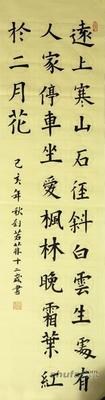 遠上寒山石徑斜白雲生處有
人家停車坐愛楓林晚霜葉紅
於二月花
己亥年秋劉若菻十二歲書